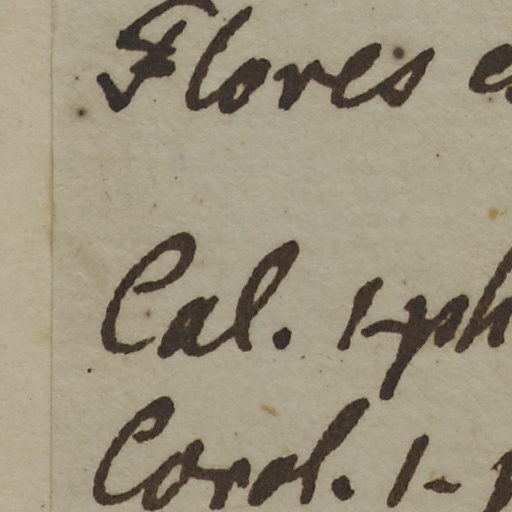 Flores
Cal. 1-ph
Corol. 1-